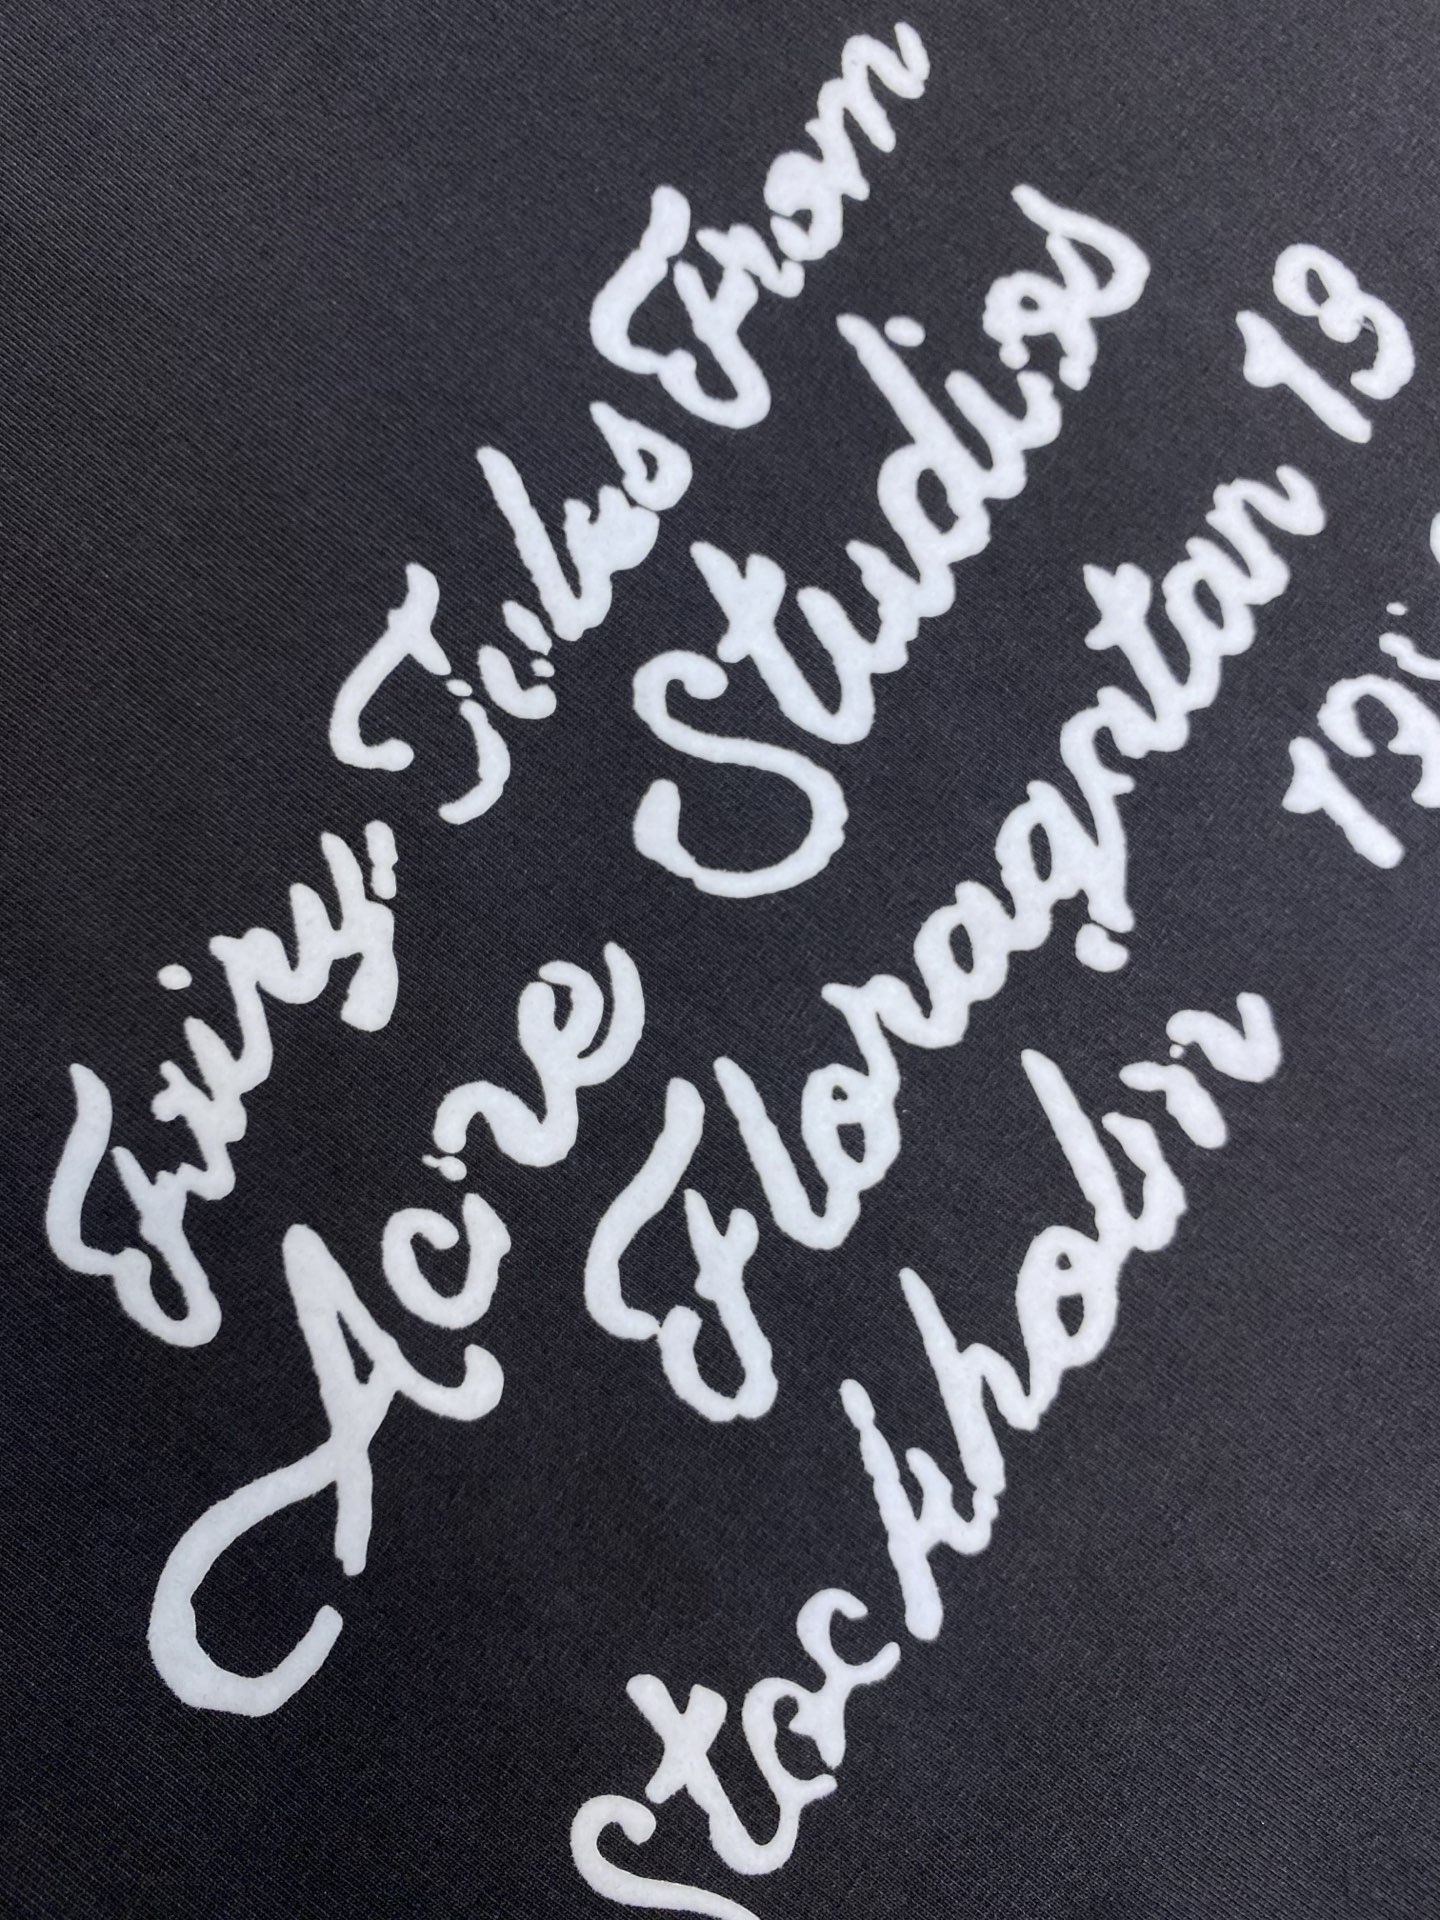 Fairy Tales From
Acne Studios
Floragatan 13
Stockholm